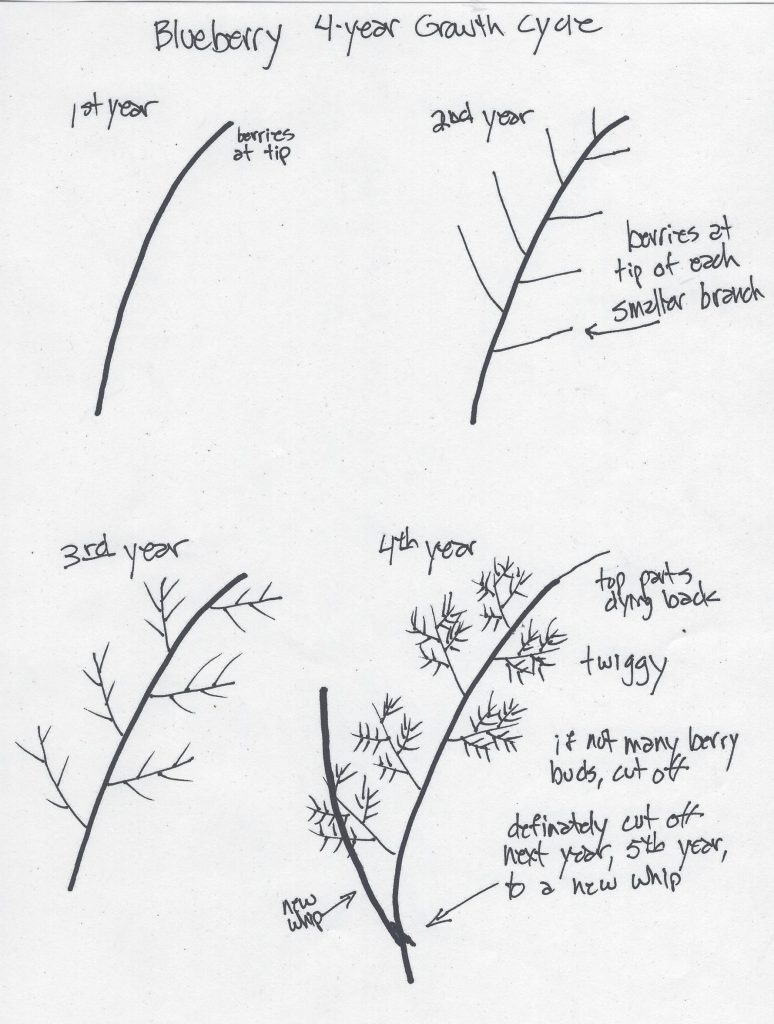 Blueberry 4-year Growth Cycle
1st year
berries
at tip
2nd year
berries at
tip of each
smaller branch
3rd year
4th year
top parts
dying back
twiggy
if not many berry
buds, cut off
definately cut off
next year, 5th year,
to a new whip
new
whip